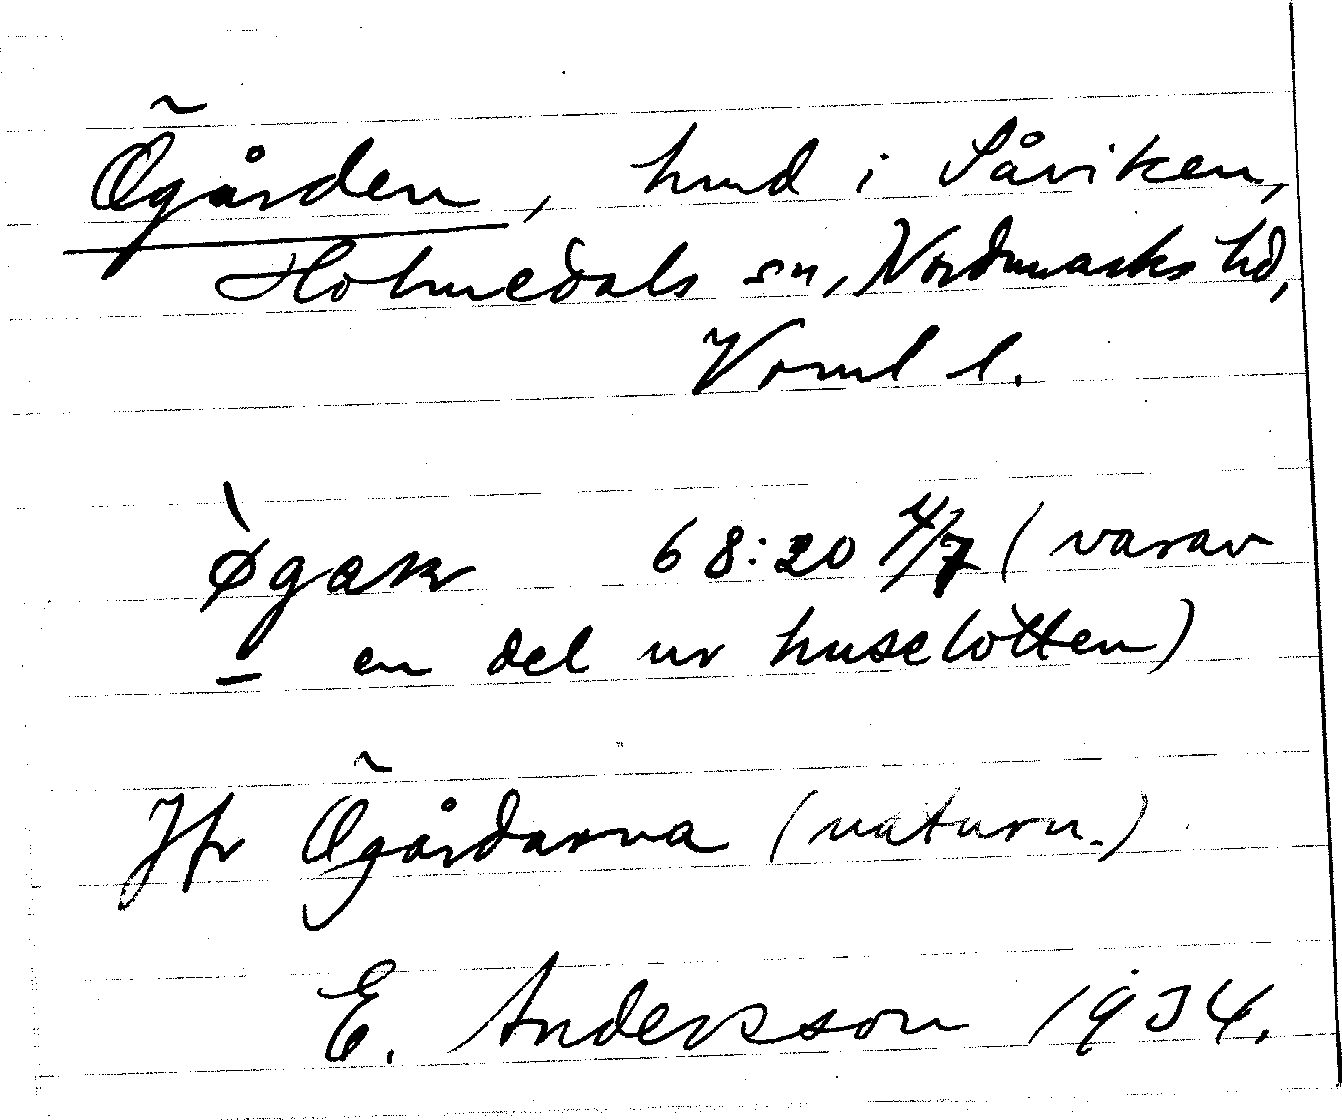 Ögården, hmd i Såviken,
Holmedals sn, Nordmarks hd,
Vrml l.
øgaɳ 68:20 4/7 (varav
en del ur huselotten)
Jfr Ögårdarna (naturn.)
E. Andersson 1934.